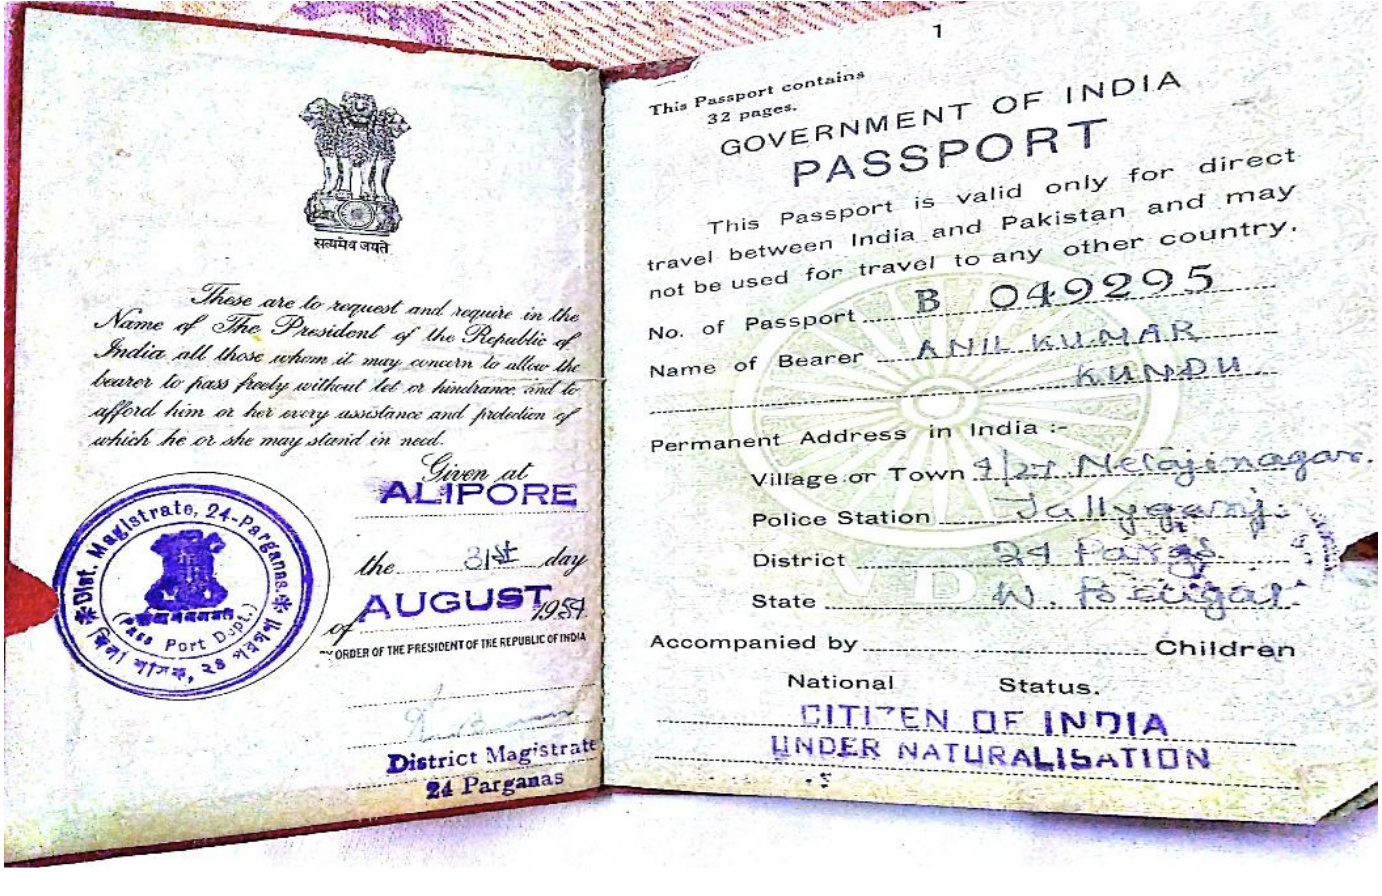 सत्यमेव जयते
These are to request and require in the
Name of The President of the Republic of
India all those whom it may concern to allow the
bearer to pass freely without let or hindrance and to
afford him or her every assistance and protection of
which he or she may stand in need.
Given at
ALIPORE
the 31st day
of AUGUST 1959
BY ORDER OF THE PRESIDENT OF THE REPUBLIC OF INDIA
District Magistrate
24 Parganas
Dist. Magistrate, 24-Parganas
(Pass Port Dept.)
জিলা শাসক, ২৪ পরগণা
1
This Passport contains
32 pages.
GOVERNMENT OF INDIA
PASSPORT
This Passport is valid only for direct
travel between India and Pakistan and may
not be used for travel to any other country.
No. of Passport B 049295
Name of Bearer ANIL KUMAR
KUNDU
Permanent Address in India :-
Village or Town Netajinagar.
Police Station Tallyganj.
District 24 Pargs.
State W. Bengal
Accompanied by Children
National Status.
CITIZEN OF INDIA
UNDER NATURALISATION